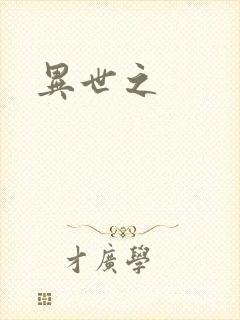 異世之
才廣學